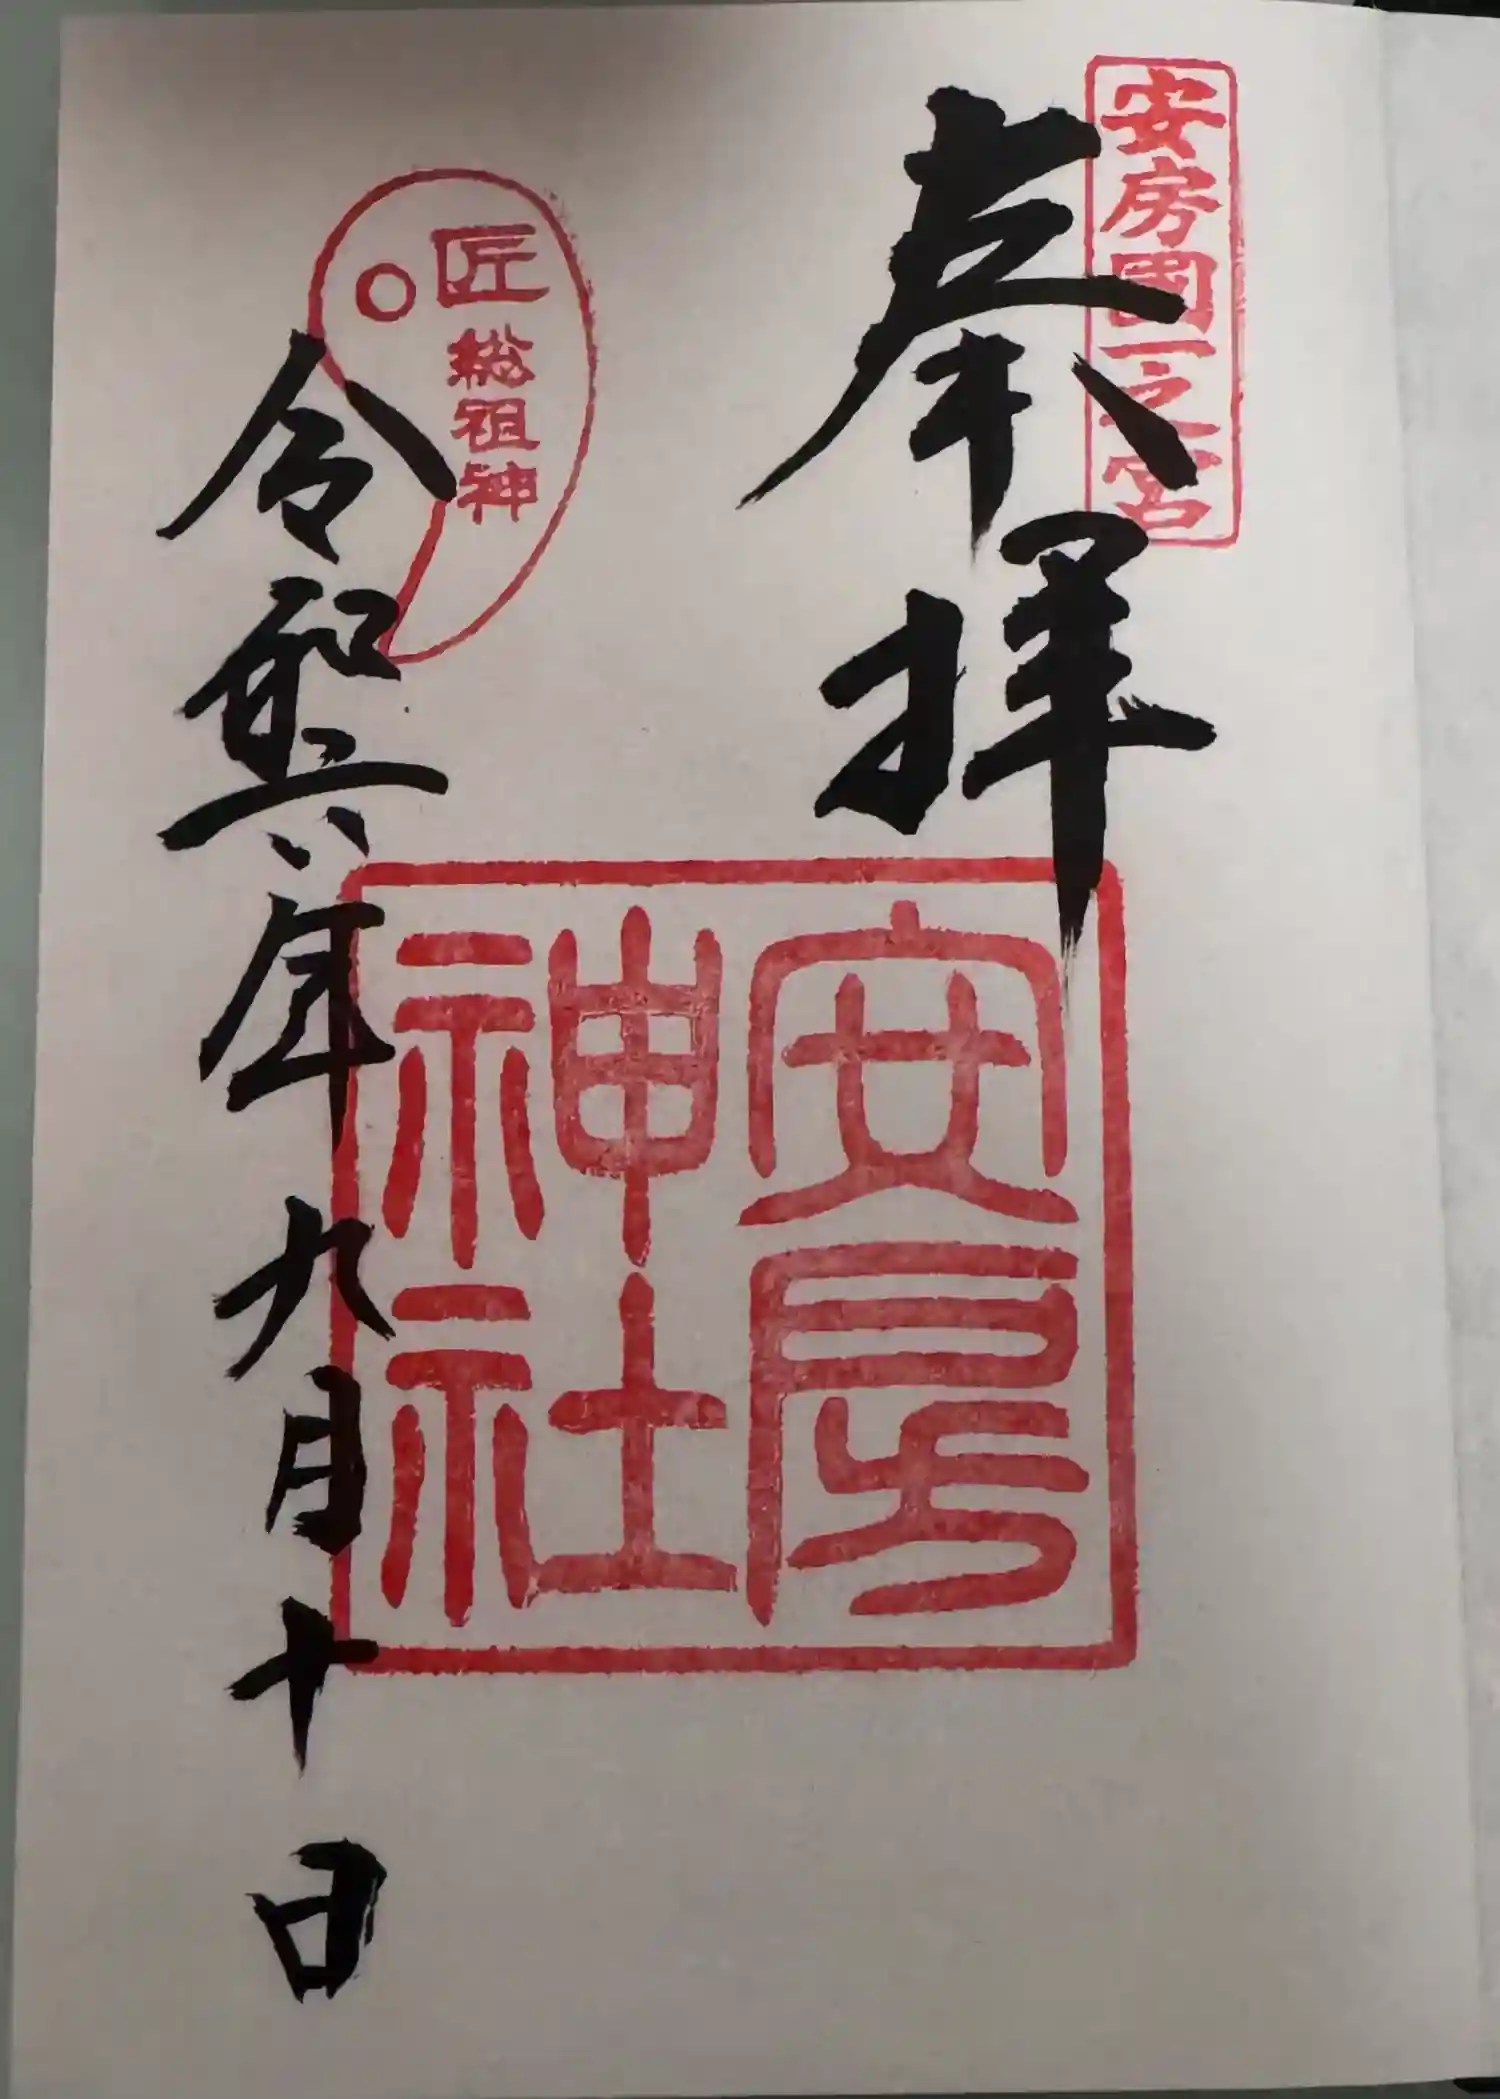 安房國一之宮
奉拝
安房
神社
匠
総祖神
令和六年九月十日